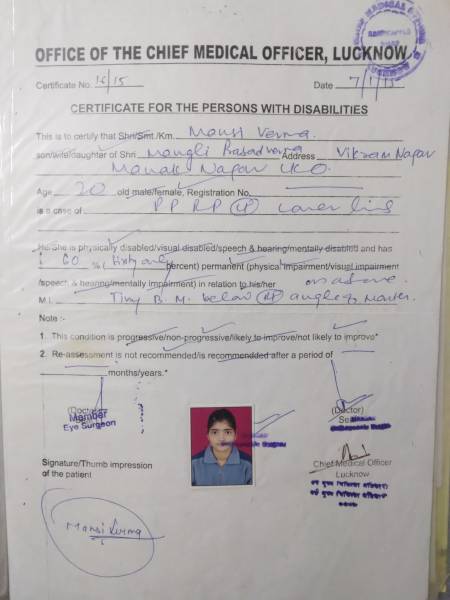 MEDICAL
LUCKNOW
OFFICE OF THE CHIEF MEDICAL OFFICER, LUCKNOW
Certificate No. 16/15 Date 7/1/15
CERTIFICATE FOR THE PERSONS WITH DISABILITIES
This is to certify that Shri/Smt./Km. Mansi Verma
son/wife/daughter of Shri Mangli Prasad Verma Address Vikram Nagar
Manak Nagar LKO.
Age 20 old male/female, Registration No.
is a case of PPRP Lower limb
He/She is physically disabled/visual disabled/speech & hearing/mentally disabled and has
60 % (Sixty only percent) permanent (physical impairment/visual impairment
/speech & hearing/mentally impairment) in relation to his/her as above
M.I. Tiny B. M. below angle of
Note :-
1. This condition is progressive/non-progressive/likely to improve/not likely to improve*
2. Re-assessment is not recommended/is recommended after a period of
months/years.*
(Doctor)
Member
Eye Surgeon
(Doctor)
Signature/Thumb impression
of the patient
Chief Medical Officer
Lucknow
Mansi Verma